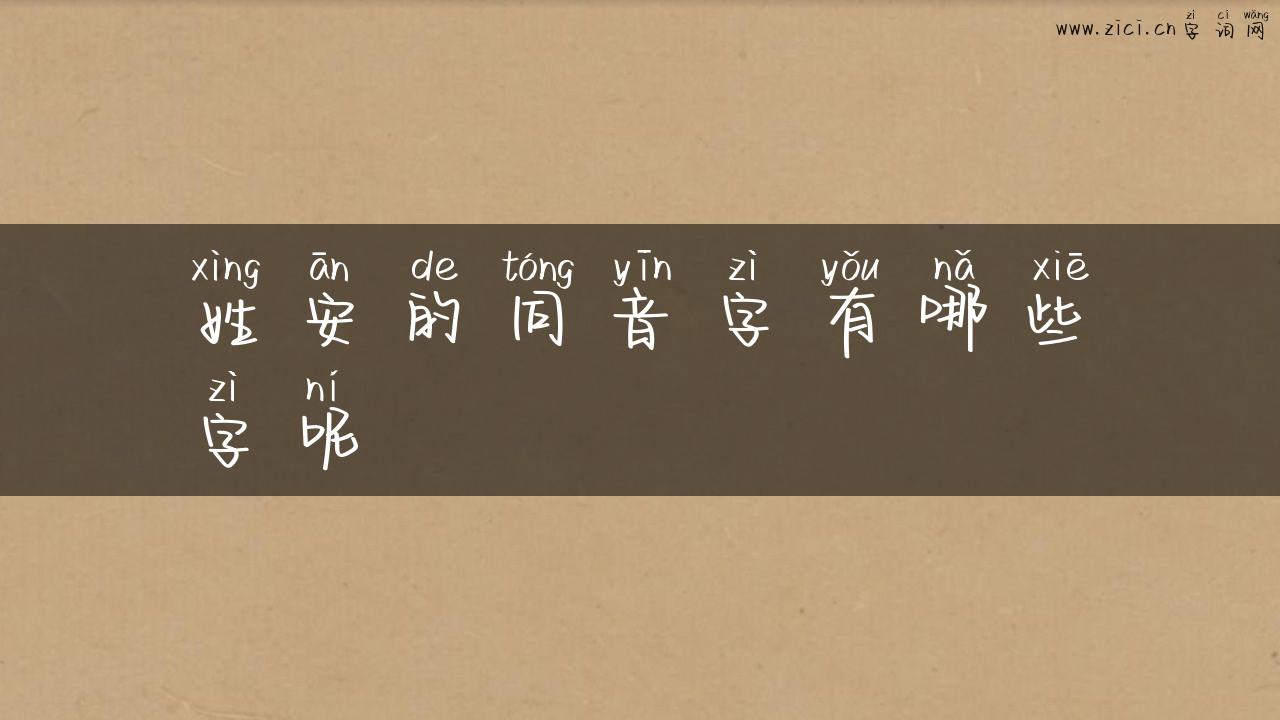 zì cí wǎng
www.zici.cn 字词网
xìng ān de tóng yīn zì yǒu nǎ xiē
姓安的同音字有哪些
zì ní
字呢